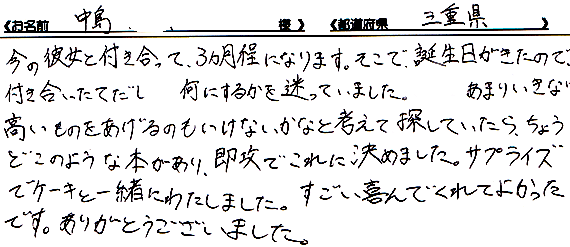 《お名前 中島 様》 《都道府県 三重県 》
今の彼女と付き合って、3ヵ月程になります。そこで、誕生日がきたので、
付き合いたてだし 何にするかを迷っていました。 あまりいきな
高いものをあげるのもいけないかなと考えて探していたら、ちょう
どこのような本があり、即攻でこれに決めました。サプライズ
でケーキと一緒にわたしました。すごい喜んでくれてよかった
です。ありがとうございました。